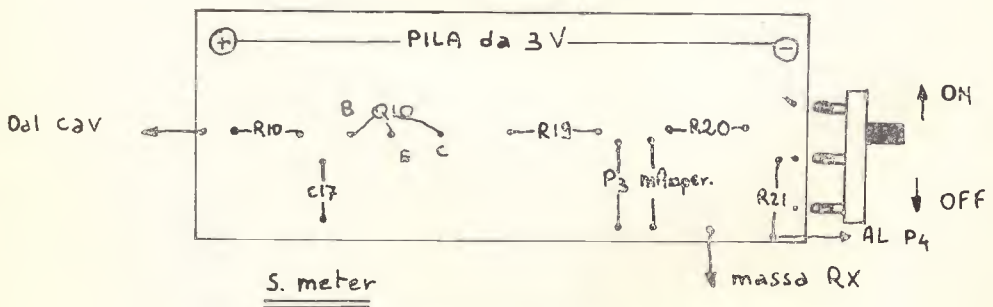 + PILA da 3 V -
ON
Dal cav
B Q10
R10
E C
R19
R20
C17
P3 mAmper.
R21
OFF
AL P4
massa RX
S. meter